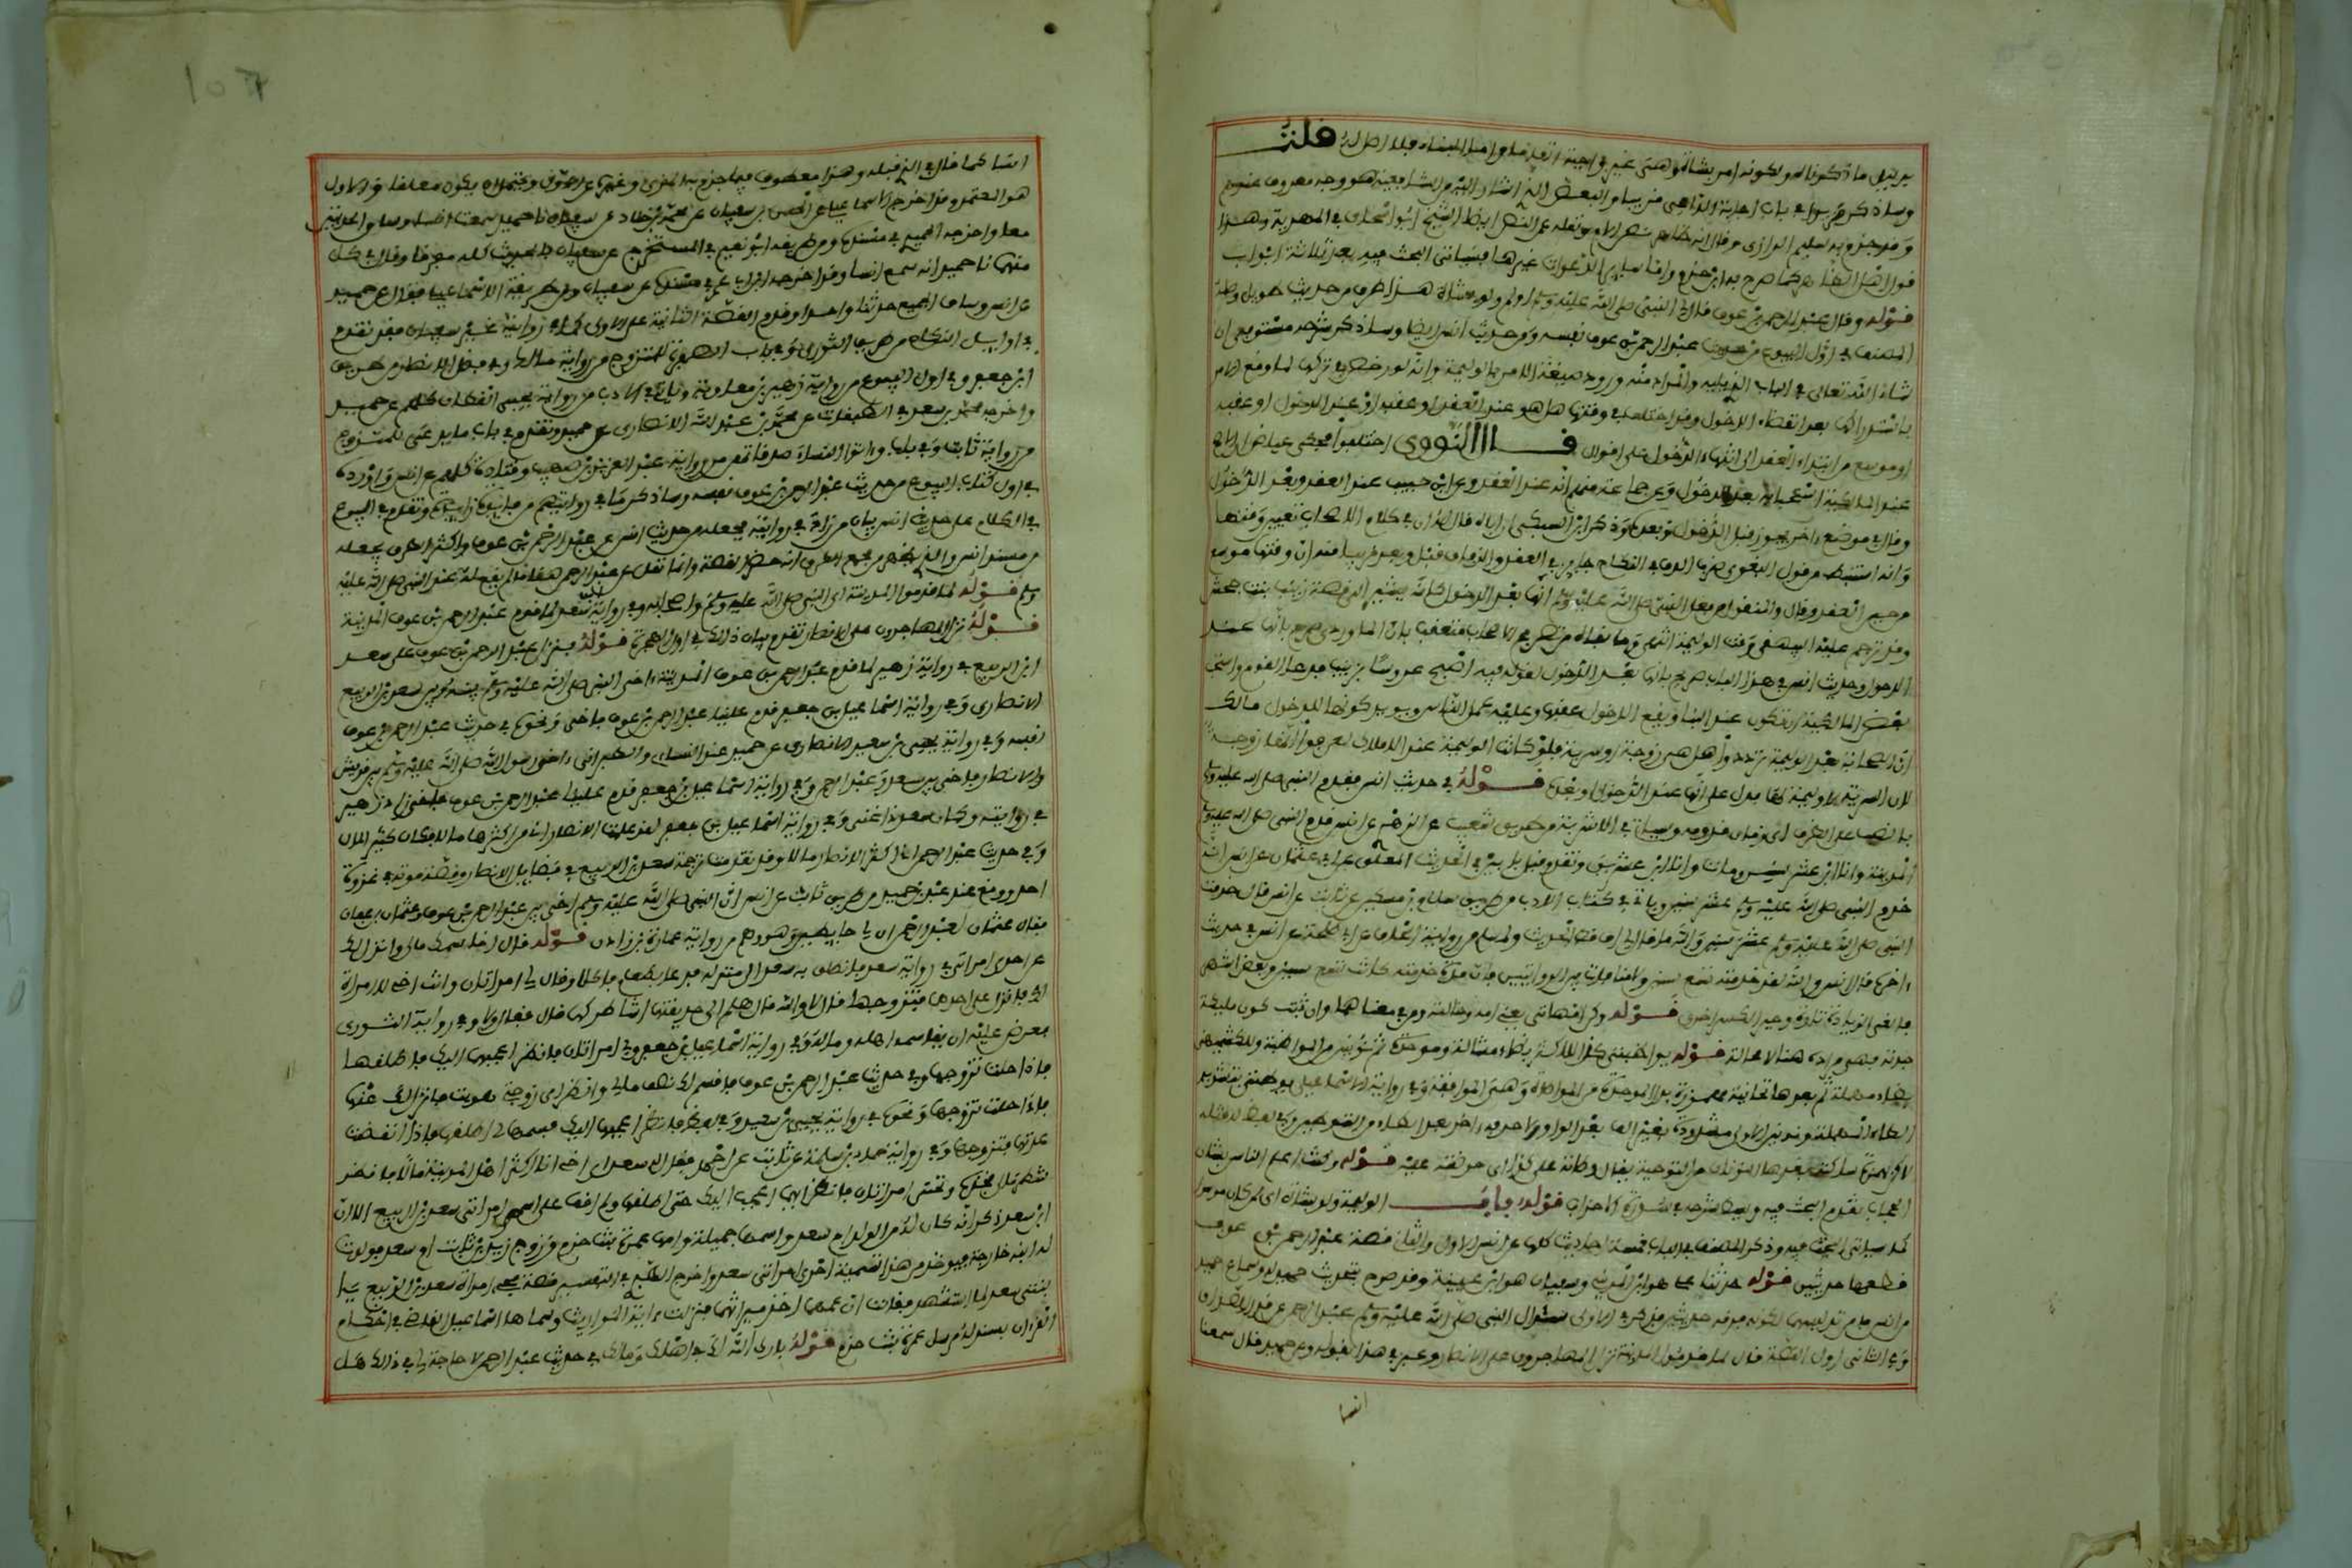 بدليل ما ذكرناه ولكونه امر بشاة وهي غير واجبة اتفاقا واما البناء فلا اصل له قلت
وساذكر في باب اجابة الداعي والبعض الذي اشار اليه من الشافعية هو وجه معروف عندهم
وقد جزم به سليم الرازي وقال انه ظاهر نص الام ونقله عن النص ايضا الشيخ ابو اسحاق في المهذب وهذا
قول اهل الظاهر كما صرح به ابن حزم واما سائر الدعوات غيرها فسياتي البحث فيه بعد ثلاثة ابواب
قوله وقال عبد الرحمن بن عوف قال لي النبي صلى الله عليه وسلم اولم ولو بشاة هذا طرف من حديث طويل وصله
المصنف في اول البيوع من حديث عبد الرحمن بن عوف نفسه ومن حديث انس ايضا وساذكر شرحه مستوفى ان
شاء الله تعالى في الباب الذي يليه والمراد منه ورود صيغة الامر بالوليمة وانه لو رخص في تركها لما وقع الامر
باستدراكها بعد انقضاء الدخول وقد اختلف في وقتها هل هو عند العقد او عقبه او عند الدخول او عقبه
او موسع من ابتداء العقد الى انتهاء الدخول على اقوال قال النووي اختلفوا فحكى عياض ان الاصح
عند المالكية استحبابه بعد الدخول وعن جماعة منهم انه عند العقد وعن ابن حبيب عند العقد وبعد الدخول
وقال في موضع اخر يجوز قبل الدخول وبعده وذكر ابن السبكي ان اباه قال لم ار في كلام الاصحاب تعيين وقتها
وانه استنبط من قول البغوي ضرب الدف في النكاح جائز في العقد والزفاف قبل وبعد قريبا منه ان وقتها موسع
من حين العقد وقال والمنقول من فعل النبي صلى الله عليه وسلم انها بعد الدخول كانه يشير الى قصة زينب بنت جحش
وقد ترجم عليه البيهقي وقت الوليمة انتهى وما نفاه من تصريح الاصحاب متعقب بان الماوردي صرح بانها عند
الدخول وحديث انس في هذا الباب صريح بانها بعد الدخول لقوله فيه اصبح عروسا بزينب فدعا القوم واستحب
بعض المالكية ان تكون عند البنا ويقع الدخول عقبها وعليه عمل الناس ويويد كونها للدخول لا للـ
ان الصحابة بعد الوليمة ترددوا هل هي زوجة او سرية فلو كانت الوليمة عند الاملاك لعرفوا انها زوجة
لان السرية لا وليمة لها فدل على انها عند الدخول او بعده قوله في حديث انس مقدم النبي صلى الله عليه وسلم
بالنصب على الظرف اي زمان قدومه وسياتي في الاشربة من طريق شعيب عن الزهري عن انس قدم النبي صلى الله عليه وسلم
المدينة وانا ابن عشر سنين ومات وانا ابن عشرين وتقدم قبل بابين في الحديث المعلق عن ابي عثمان عن انس انه
خدم النبي صلى الله عليه وسلم عشر سنين وياتي في كتاب الادب من طريق سلام بن مسكين عن ثابت عن انس قال خدمت
النبي صلى الله عليه وسلم عشر سنين والله ما قال لي اف قط الحديث ولمسلم من رواية اسحاق بن ابي طلحة عن انس في حديث
اخره قال انس والله لقد خدمته تسع سنين ولا منافاة بين الروايتين فان مدة خدمته كانت تسع سنين وبعض اشهر
فالغى الزيادة تارة وجبر الكسر اخرى قوله وكن امهاتي يعني امه وخالته ومن في معناهما وان ثبت كون مليكة
جدته فهي مرادة هنا لا محالة قوله يواظبنني كذا للاكثر بظاء مشالة وموحدة ثم نونين من المواظبة وللكشميهني
بطاء مهملة ثم بعدها تحتانية مهموزة بدل الموحدة من المواطاة وهي الموافقة وفي رواية الاسماعيلي يوطنني بتشديد
الطاء المهملة ونونين الاولى مشددة بغير الف بعد الواو ولا حرف اخر بعد الطاء من التوطين وفي لفظ له مثله
لكن بهمزة ساكنة بعدها النونان من التوطئة يقال وطاته على كذا اي حرضته عليه قوله وكنت اعلم الناس بشان
الحجاب تقدم البحث فيه وبيان شرحه في سورة الاحزاب قوله باب الوليمة ولو بشاة اي لمن كان موسرا
كما سياتي البحث فيه وذكر المصنف في الباب خمسة احاديث كلها عن انس الاول والثاني قصة عبد الرحمن بن عوف
قطعها حديثين قوله حدثنا علي هو ابن المديني وسفيان هو ابن عيينة وقد صرح بتحديث حميد له وسماع حميد
من انس فامن تدليسهما لكنه فرقه حديثين فذكر في الاول سوال النبي صلى الله عليه وسلم عبد الرحمن عن قدر الصداق
وفي الثاني اول القصة قال لما قدموا المدينة نزل المهاجرون على الانصار وعبر في هذا بقوله وعن حميد قال سمعت
انسا
107
انسا كما قال في الذي قبله وهذا معطوف فيما جزم به المزي وغيره على الاول ويحتمل ان يكون معلقا والاول
هو المعتمد وقد اخرجه الاسماعيلي عن الحسن بن سفيان عن محمد بن خلاد عن سفيان نا حميد سمعت انسا وساق الحديثين
معا واخرجه الحميدي في مسنده ومن طريقه ابو نعيم في المستخرج عن سفيان بالحديث كله مفرقا وقال في كل
منهما نا حميد انه سمع انسا وقد اخرجه ابن ابي عمر في مسنده عن سفيان ومن طريقه الاسماعيلي فقال عن حميد
عن انس وساق الجميع حديثا واحدا وقدم القصة الثانية على الاولى كما في رواية غير سفيان فقد تقدم
في اوايل النكاح من طريق الثوري وفي باب الصفرة للمتزوج من رواية مالك وفي فضل الانصار من طريق
ابن جعفر وفي اول البيوع من رواية زهير بن معاوية وياتي في الادب من رواية يحيى القطان كلهم عن حميد
واخرجه محمد بن سعد في الطبقات عن محمد بن عبد الله الانصاري عن حميد وتقدم في باب ما يدعى للمتزوج
من رواية ثابت وفي باب واتوا النساء صدقاتهن من رواية عبد العزيز بن صهيب وقتادة كلهم عن انس واورده
في اول كتاب البيوع من حديث عبد الرحمن بن عوف نفسه وساذكر ما في رواياتهم من فائدة زايدة وتقدم في البيوع
في الكلام على حديث انس بيان من زاد في روايته فجعله من حديث انس عن عبد الرحمن بن عوف واكثر الطرق يجعله
من مسند انس والذي يظهر من مجموع الطرق انه حضر القصة وانما نقل عن عبد الرحمن منها ما لم يقع له عند النبي صلى الله عليه
وسلم قوله لما قدموا المدينة اي النبي صلى الله عليه وسلم واصحابه وفي رواية ابن سعد لما قدم عبد الرحمن بن عوف المدينة
قوله نزل المهاجرون على الانصار تقدم بيان ذلك في اول الهجرة قوله فنزل عبد الرحمن بن عوف على سعد
ابن الربيع في رواية زهير لما قدم عبد الرحمن بن عوف المدينة اخى النبي صلى الله عليه وسلم بينه وبين سعد بن الربيع
الانصاري وفي رواية اسماعيل بن جعفر قدم علينا عبد الرحمن بن عوف فاخى ونحوه في حديث عبد الرحمن بن عوف
نفسه وفي رواية يحيى بن سعيد الانصاري عن حميد عند النساءي والطبراني اخى رسول الله صلى الله عليه وسلم بين قريش
والانصار فاخى بين سعد وعبد الرحمن وفي رواية اسماعيل بن جعفر قدم علينا عبد الرحمن بن عوف فاخى زاد زهير
في روايته وكان سعد ذا غنى وفي رواية اسماعيل بن جعفر لقد علمت الانصار اني من اكثرها مالا وكان كثير المال
وفي حديث عبد الرحمن اني اكثر الانصار مالا وقد تقدمت ترجمة سعد بن الربيع في فضايل الانصار وقصة موته في غزوة
احد ووقع عند عبد بن حميد من طريق ثابت عن انس ان النبي صلى الله عليه وسلم اخى بين عبد الرحمن بن عوف وعثمان بن عفان
فقال عثمان لعبد الرحمن ان لي حايطين وهو وهم من رواية عمارة بن زاذان قوله قال اقاسمك مالي وانزل لك
عن احدى امراتي في رواية سعد فانطلق به سعد الى منزله فدعا بطعام فاكلا وقال لي امراتان وانت اخي لا امراة
لك فانزل عن احداهما فتتزوجها قال لا والله قال هلم الى حديقتي اشاطركها قال فقال لا وفي رواية الثوري
فعرض عليه ان يقاسمه اهله وماله وفي رواية اسماعيل بن جعفر ولي امراتان فانظر اعجبهما اليك فاطلقها
فاذا حلت تزوجها وفي حديث عبد الرحمن بن عوف فاقسم لك نصف مالي وانظر اي زوجتي هويت فانزل لك عنها
فاذا حلت تزوجتها ونحوه في رواية يحيى بن سعيد وفي لفظ فانظر اعجبهما اليك فسمها لي اطلقها فاذا انقضت
عدتها فتزوجها وفي رواية حماد بن سلمة عن ثابت عند احمد فقال له سعد اي اخي انا اكثر اهل المدينة مالا فانظر
شطر مالي فخذه وتحتي امراتان فانظر ايهما اعجب اليك حتى اطلقها ولم اقف على اسم امراتي سعد بن الربيع الا ان
ابن سعد ذكر انه كان له من الولد ام سعد واسمها جميلة وامها عمرة بنت حزم وتزوج زيد بن ثابت ام سعد فولدت
له ابنه خارجة فيوخذ من هذا تسمية احدى امراتي سعد واخرج الطبري في التفسير قصة مجيء امراة سعد بن الربيع با
بنتي سعد لما استشهد فقالت ان عمهما اخذ ميراثهما فنزلت اية المواريث وسماها اسماعيل القاضي في احكام
القران بسند له مرسل عمرة بنت حزم قوله بارك الله لك في اهلك ومالك في حديث عبد الرحمن لا حاجة لي في ذلك هل